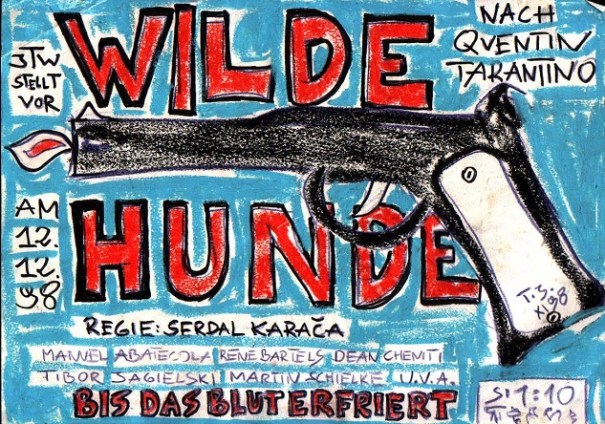 WILDE
HUNDE
JTW
STELLT
VOR
NACH
QVENTIN
TARANTINO
AM
12.
12.
98
REGIE: SERDAL KARAČA
MANUEL ABATECOLA RENE BARTELS DEAN CHEMTI
TIBOR SAGIELSKI MARTIN SCHIELKE U.V.A.
BIS DAS BLUT ERFRIERT
1:10